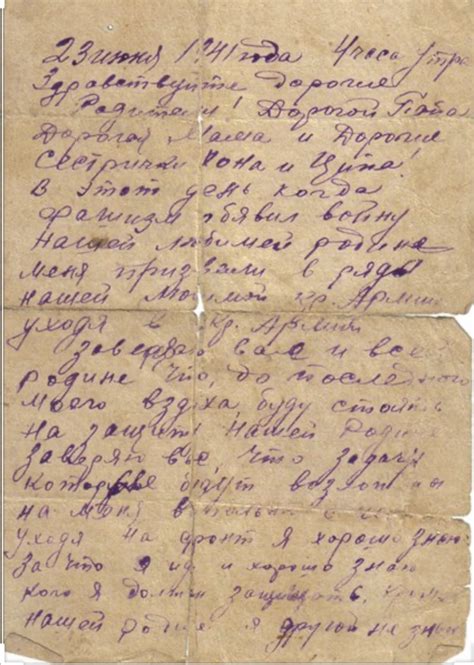 23 июня 1941 года 4 часа утра
Здравствуйте дорогие
Родители! Дорогой Папа
Дорогая Мама и Дорогие
сестрички Хона и Ципа!
В этот день когда
фашизм обявил войну
нашей любимой родине
меня призвали в ряды
нашей кр. Армии
уходя в Кр. Армию
заверяю вас и всю
родине что, до последнего
моего вздоха, буду стоять
на защите нашей Родины
заверяю вас, что задачи
которые будут возложены
на меня
уходя на фронт я хорошо знаю
за что я иду и хорошо знаю
кого я должен защищать,
нашей родине я другой не знаю